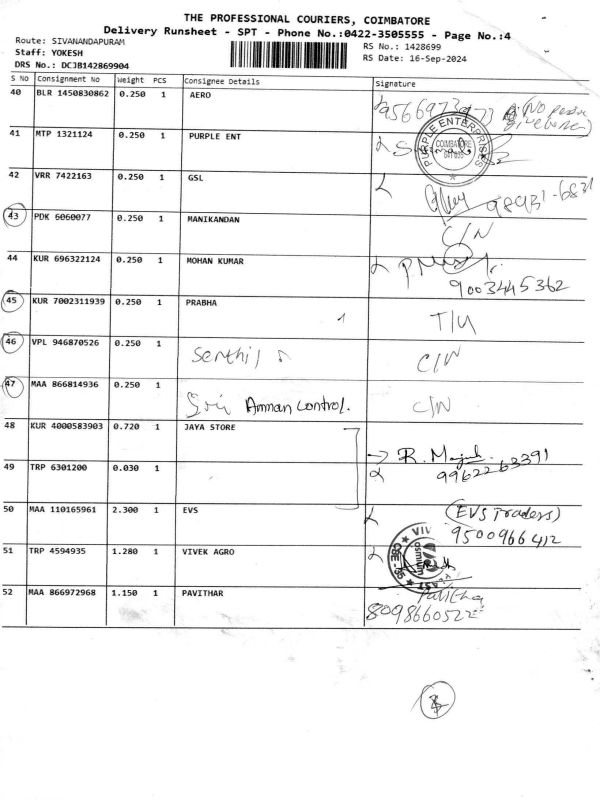 THE PROFESSIONAL COURIERS, COIMBATORE
Delivery Runsheet - SPT - Phone No.:0422-3505555 - Page No.:4
Route: SIVANANDAPURAM
RS No.: 1428699
Staff: YOKESH
RS Date: 16-Sep-2024
DRS No.: DCJB142869904
S No Consignment No Weight PCS Consignee Details Signature
40 BLR 1450830862 0.250 1 AERO
41 MTP 1321124 0.250 1 PURPLE ENT PURPLE ENTERPRISES COIMBATORE
42 VRR 7422163 0.250 1 GSL 98931-6831
43 PDK 6060077 0.250 1 MANIKANDAN C/N
44 KUR 696322124 0.250 1 MOHAN KUMAR
9003445362
45 KUR 7002311939 0.250 1 PRABHA
46 VPL 946870526 0.250 1 Senthil C/N
47 MAA 866814936 0.250 1 Sri Amman Control. C/N
48 KUR 4000583903 0.720 1 JAYA STORE
49 TRP 6301200 0.030 1 9962263391
50 MAA 110165961 2.300 1 EVS (EVS Traders)
9500966412
51 TRP 4594935 1.280 1 VIVEK AGRO
52 MAA 866972968 1.150 1 PAVITHAR
8098660522